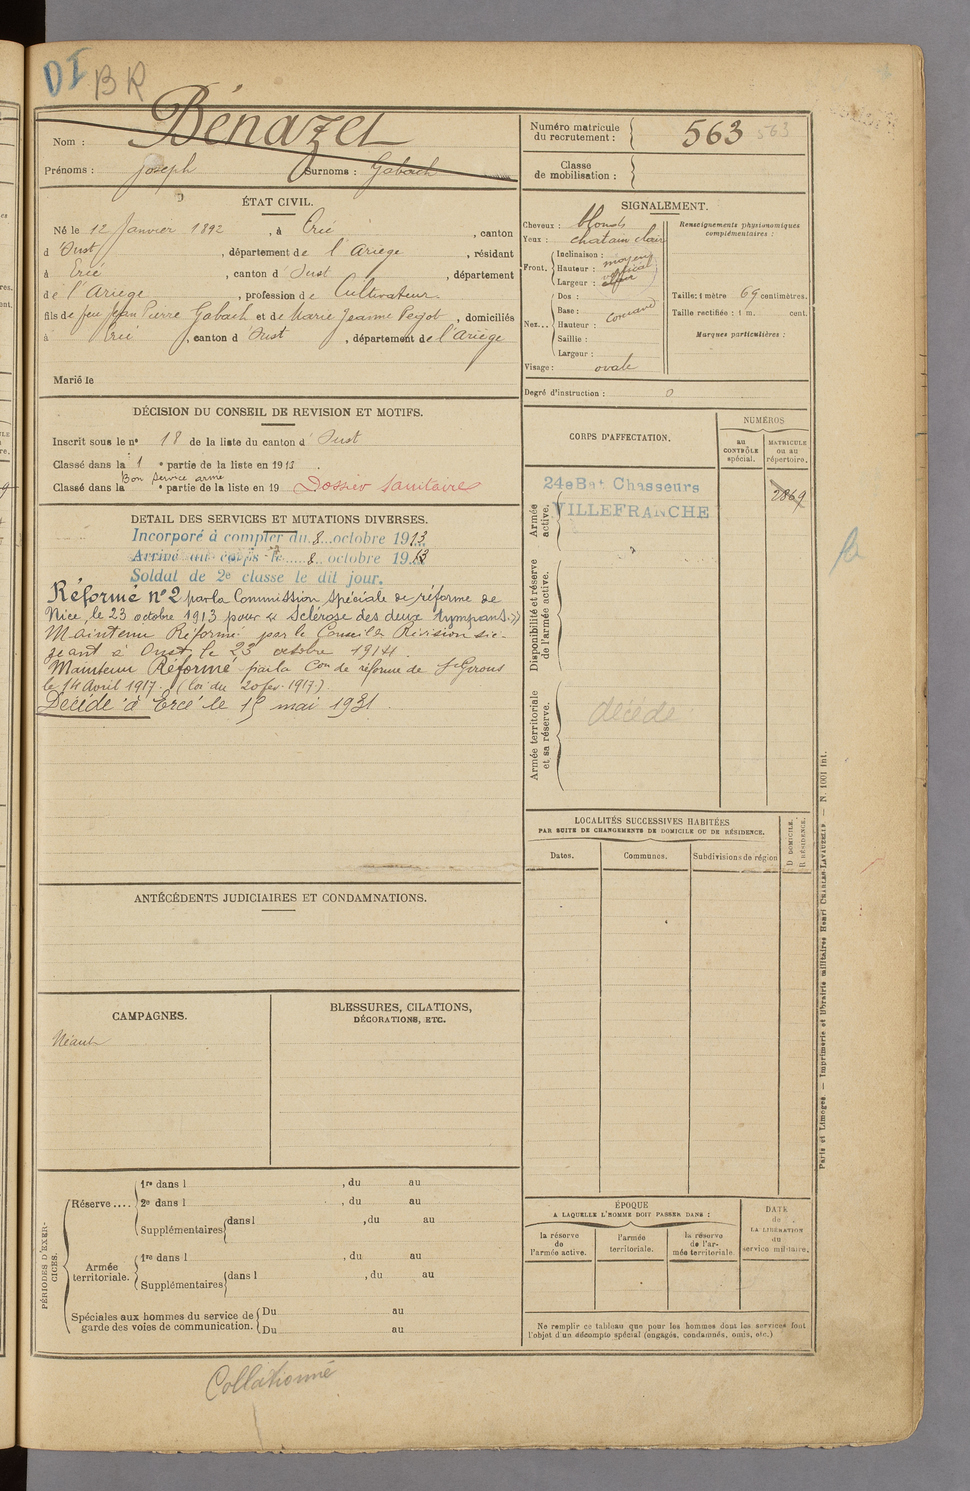 DI BR
Bénazet
Nom :
Prénoms : Joseph Surnoms : Gabach
ÉTAT CIVIL.
Né le 12 Janvier 1892, à Ercé, canton
d'Oust, département de l'Ariège, résidant
à Ercé, canton d'Oust, département
de l'Ariège, profession de Cultivateur
fils de feu Jean Pierre Gabach et de Marie Jeanne Peyot, domiciliés
à Ercé, canton d'Oust, département de l'Ariège
Marié le
DÉCISION DU CONSEIL DE REVISION ET MOTIFS.
Inscrit sous le no 18 de la liste du canton d'Oust
Classé dans la 1e partie de la liste en 1913.
Bon Service armé
Classé dans la e partie de la liste en 19 Dossier Sanitaire
DETAIL DES SERVICES ET MUTATIONS DIVERSES.
Incorporé à compter du 8 octobre 1913
Arrivé au corps le 8 octobre 1913
Soldat de 2e classe le dit jour.
Réformé n° 2 par la Commission Spéciale de réforme de
Nice, le 23 octobre 1913 pour « Sclérose des deux tympans. »
Maintenu Réformé par le Conseil de Révision sié-
geant à Oust, le 23 octobre 1914.
Maintenu Réformé par la Con de réforme de St Girons
le 14 Avril 1917. (loi du 20 fev. 1917).
Décédé à Ercé le 15 mai 1931.
ANTÉCÉDENTS JUDICIAIRES ET CONDAMNATIONS.
CAMPAGNES.
Néant
BLESSURES, CILATIONS,
DÉCORATIONS, ETC.
PÉRIODES D'EXER-
CICES.
Réserve ....
1re dans l , du au
2e dans l , du au
Supplémentaires dans l , du au
Armée
territoriale.
1re dans l , du au
Supplémentaires dans l , du au
Spéciales aux hommes du service de
garde des voies de communication.
Du au
Du au
Numéro matricule
du recrutement : 563 563
Classe
de mobilisation :
SIGNALEMENT.
Cheveux : blonds
Yeux : chatain clair
Front.
Inclinaison : moyen
Hauteur : vertical
Largeur :
Nez...
Dos :
Base :
Hauteur :
Saillie :
Largeur :
Visage : ovale
Renseignements physionomiques
complémentaires :
Taille : 1 mètre 69 centimètres.
Taille rectifiée : 1 m. cent.
Marques particulières :
Degré d'instruction : 0
CORPS D'AFFECTATION.
NUMÉROS
au
CONTRÔLE
spécial.
MATRICULE
ou au
répertoire.
Armée
active.
24e Bat Chasseurs
VILLEFRANCHE
2869
Disponibilité et réserve
de l'armée active.
Armée territoriale
et sa réserve.
décédé
LOCALITÉS SUCCESSIVES HABITÉES
PAR SUITE DE CHANGEMENTS DE DOMICILE OU DE RÉSIDENCE.
Dates.
Communes.
Subdivisions de région
D. DOMICILE.
R. RÉSIDENCE.
ÉPOQUE
A LAQUELLE L'HOMME DOIT PASSER DANS :
la réserve
de
l'armée active.
l'armée
territoriale.
la réserve
de l'ar-
mée territoriale.
DATE
de
LA LIBÉRATION
du
service militaire.
Ne remplir ce tableau que pour les hommes dont les services font
l'objet d'un décompte spécial (engagés, condamnés, omis, etc.)
Paris et Limoges. — Imprimerie et librairie militaires Henri CHARLES-LAVAUZELLE. — N. 1001 int.
Collationné